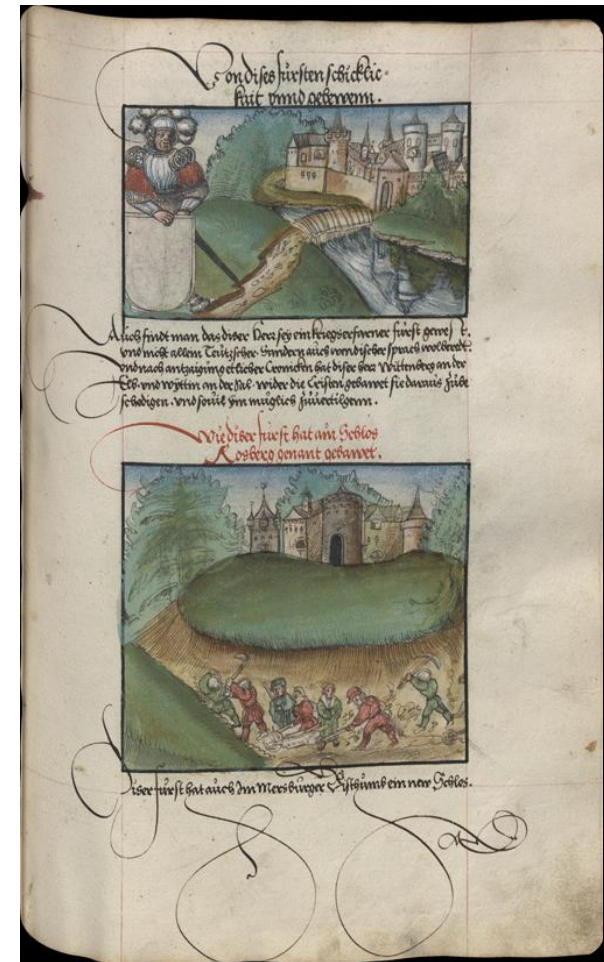 Von dises fürsten schicklic-
kait vnnd gebewenn.
Auch findt man das diser herr sey ein kriegserfarner fürst gewest.
vnd nicht allein Teütscher sundern auch wendischer sprach wolberedt.
vnd nach antzaigung etlicher Cronicken hat diser herr Wittenberg an der
Elb vnd Wyttin an der Sal wider die Cristen gebawet sie daraus zübe
schedigen vnd souil ym müglich züuertilgenn.
Wie diser fürst hat ain Schlos
Rosberg genant gebawet.
Diser fürst hat auch Im Mersbürger Bisthumb ein new Schlos.